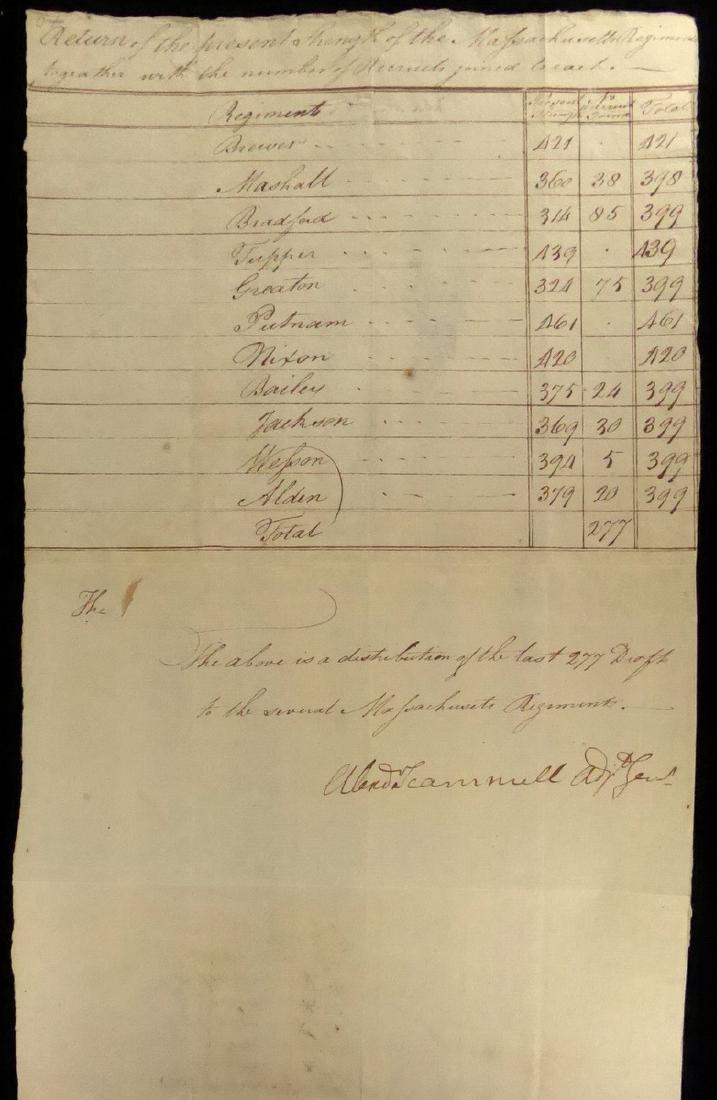 Return of the present strength of the Massachusetts Regiments
togeather with the number of Recruits joined to each. —
Regiments Present Strength Recruits Joined Total
Brewer 421 . 421
Mashall 360 38 398
Bradford 314 85 399
Tupper 439 . 439
Greaton 324 75 399
Putnam 461 . 461
Nixon 420 420
Bailey 375 24 399
Jackson 369 30 399
Wesson 394 5 399
Alden 379 20 399
Total 277
The
The above is a distribution of the last 277 Draft
to the several Massachusets Regiments. —
Alexdr Scammell Adjt Genl